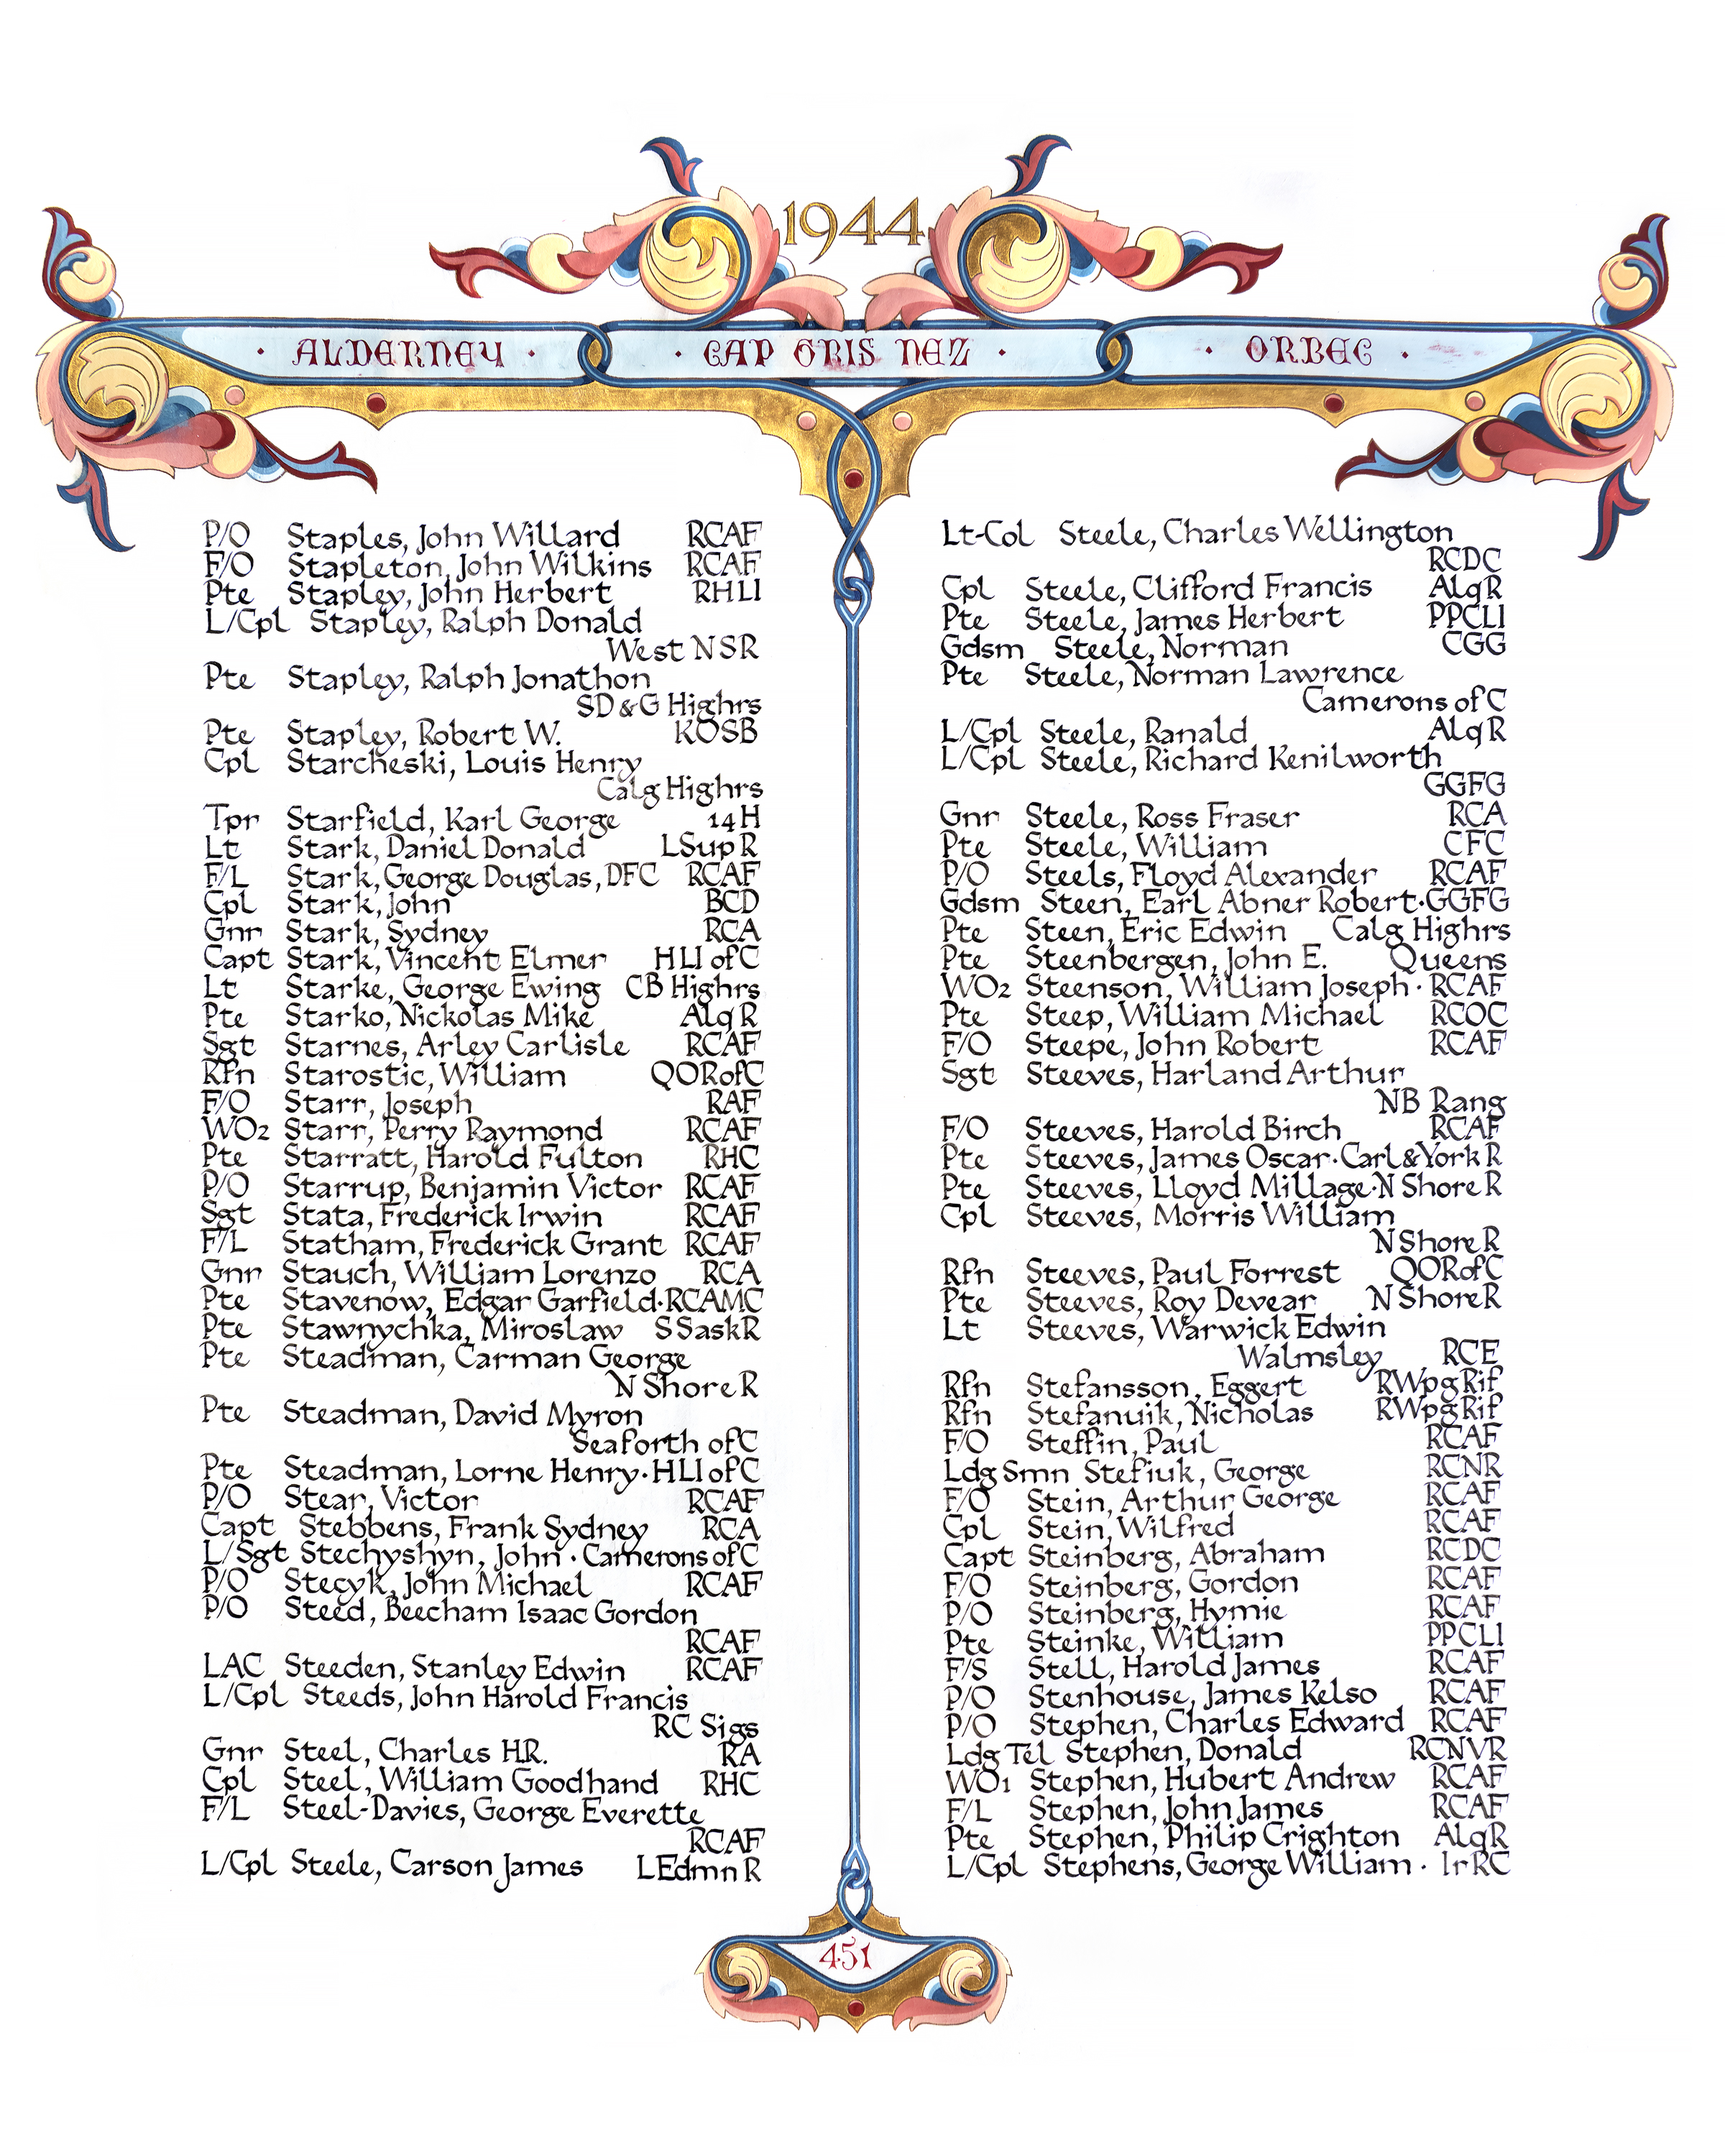 1944
· ALDERNEY · · CAP GRIS NEZ · · ORBEC ·
P/O Staples, John Willard RCAF
F/O Stapleton, John Wilkins RCAF
Pte Stapley, John Herbert RHLI
L/Cpl Stapley, Ralph Donald
West NSR
Pte Stapley, Ralph Jonathon
SD&G Highrs
Pte Stapley, Robert W. KOSB
Cpl Starcheski, Louis Henry
Calg Highrs
Tpr Starfield, Karl George 14H
Lt Stark, Daniel Donald LSupR
F/L Stark, George Douglas, DFC RCAF
Cpl Stark, John BCD
Gnr Stark, Sydney RCA
Capt Stark, Vincent Elmer HLI of C
Lt Starke, George Ewing CB Highrs
Pte Starko, Nickolas Mike AlqR
Sgt Starnes, Arley Carlisle RCAF
Rfn Starostic, William QORofC
F/O Starr, Joseph RAF
WO2 Starr, Perry Raymond RCAF
Pte Starratt, Harold Fulton RHC
P/O Starrup, Benjamin Victor RCAF
Sgt Stata, Frederick Irwin RCAF
F/L Statham, Frederick Grant RCAF
Gnr Stauch, William Lorenzo RCA
Pte Stavenow, Edgar Garfield·RCAMC
Pte Stawnychka, Miroslaw SSaskR
Pte Steadman, Carman George
N Shore R
Pte Steadman, David Myron
Seaforth ofC
Pte Steadman, Lorne Henry·HLI ofC
P/O Stear, Victor RCAF
Capt Stebbens, Frank Sydney RCA
L/Sgt Stechyshyn, John · Camerons of C
P/O Stecyk, John Michael RCAF
P/O Steed, Beecham Isaac Gordon
RCAF
LAC Steeden, Stanley Edwin RCAF
L/Cpl Steeds, John Harold Francis
RC Sigs
Gnr Steel, Charles H.R. RA
Cpl Steel, William Goodhand RHC
F/L Steel-Davies, George Everette
RCAF
L/Cpl Steele, Carson James LEdmn R
Lt-Col Steele, Charles Wellington
RCDC
Cpl Steele, Clifford Francis AlqR
Pte Steele, James Herbert PPCLI
Gdsm Steele, Norman CGG
Pte Steele, Norman Lawrence
Camerons of C
L/Cpl Steele, Ranald AlqR
L/Cpl Steele, Richard Kenilworth
GGFG
Gnr Steele, Ross Fraser RCA
Pte Steele, William CFC
P/O Steels, Floyd Alexander RCAF
Gdsm Steen, Earl Abner Robert·GGFG
Pte Steen, Eric Edwin Calg Highrs
Pte Steenbergen, John E. Queens
WO2 Steenson, William Joseph · RCAF
Pte Steep, William Michael RCOC
F/O Steepe, John Robert RCAF
Sgt Steeves, Harland Arthur
NB Rang
F/O Steeves, Harold Birch RCAF
Pte Steeves, James Oscar·Carl&York R
Pte Steeves, Lloyd Millage·N Shore R
Cpl Steeves, Morris William
N Shore R
Rfn Steeves, Paul Forrest QORofC
Pte Steeves, Roy Devear N Shore R
Lt Steeves, Warwick Edwin
Walmsley RCE
Rfn Stefansson, Eggert RWpgRif
Rfn Stefanuik, Nicholas RWpgRif
F/O Steffin, Paul RCAF
Ldg Smn Stefiuk, George RCNR
F/O Stein, Arthur George RCAF
Cpl Stein, Wilfred RCAF
Capt Steinberg, Abraham RCDC
F/O Steinberg, Gordon RCAF
P/O Steinberg, Hymie RCAF
Pte Steinke, William PPCLI
F/S Stell, Harold James RCAF
P/O Stenhouse, James Kelso RCAF
P/O Stephen, Charles Edward RCAF
Ldg Tel Stephen, Donald RCNVR
WO1 Stephen, Hubert Andrew RCAF
F/L Stephen, John James RCAF
Pte Stephen, Philip Crighton AlqR
L/Cpl Stephens, George William · IrRC
451